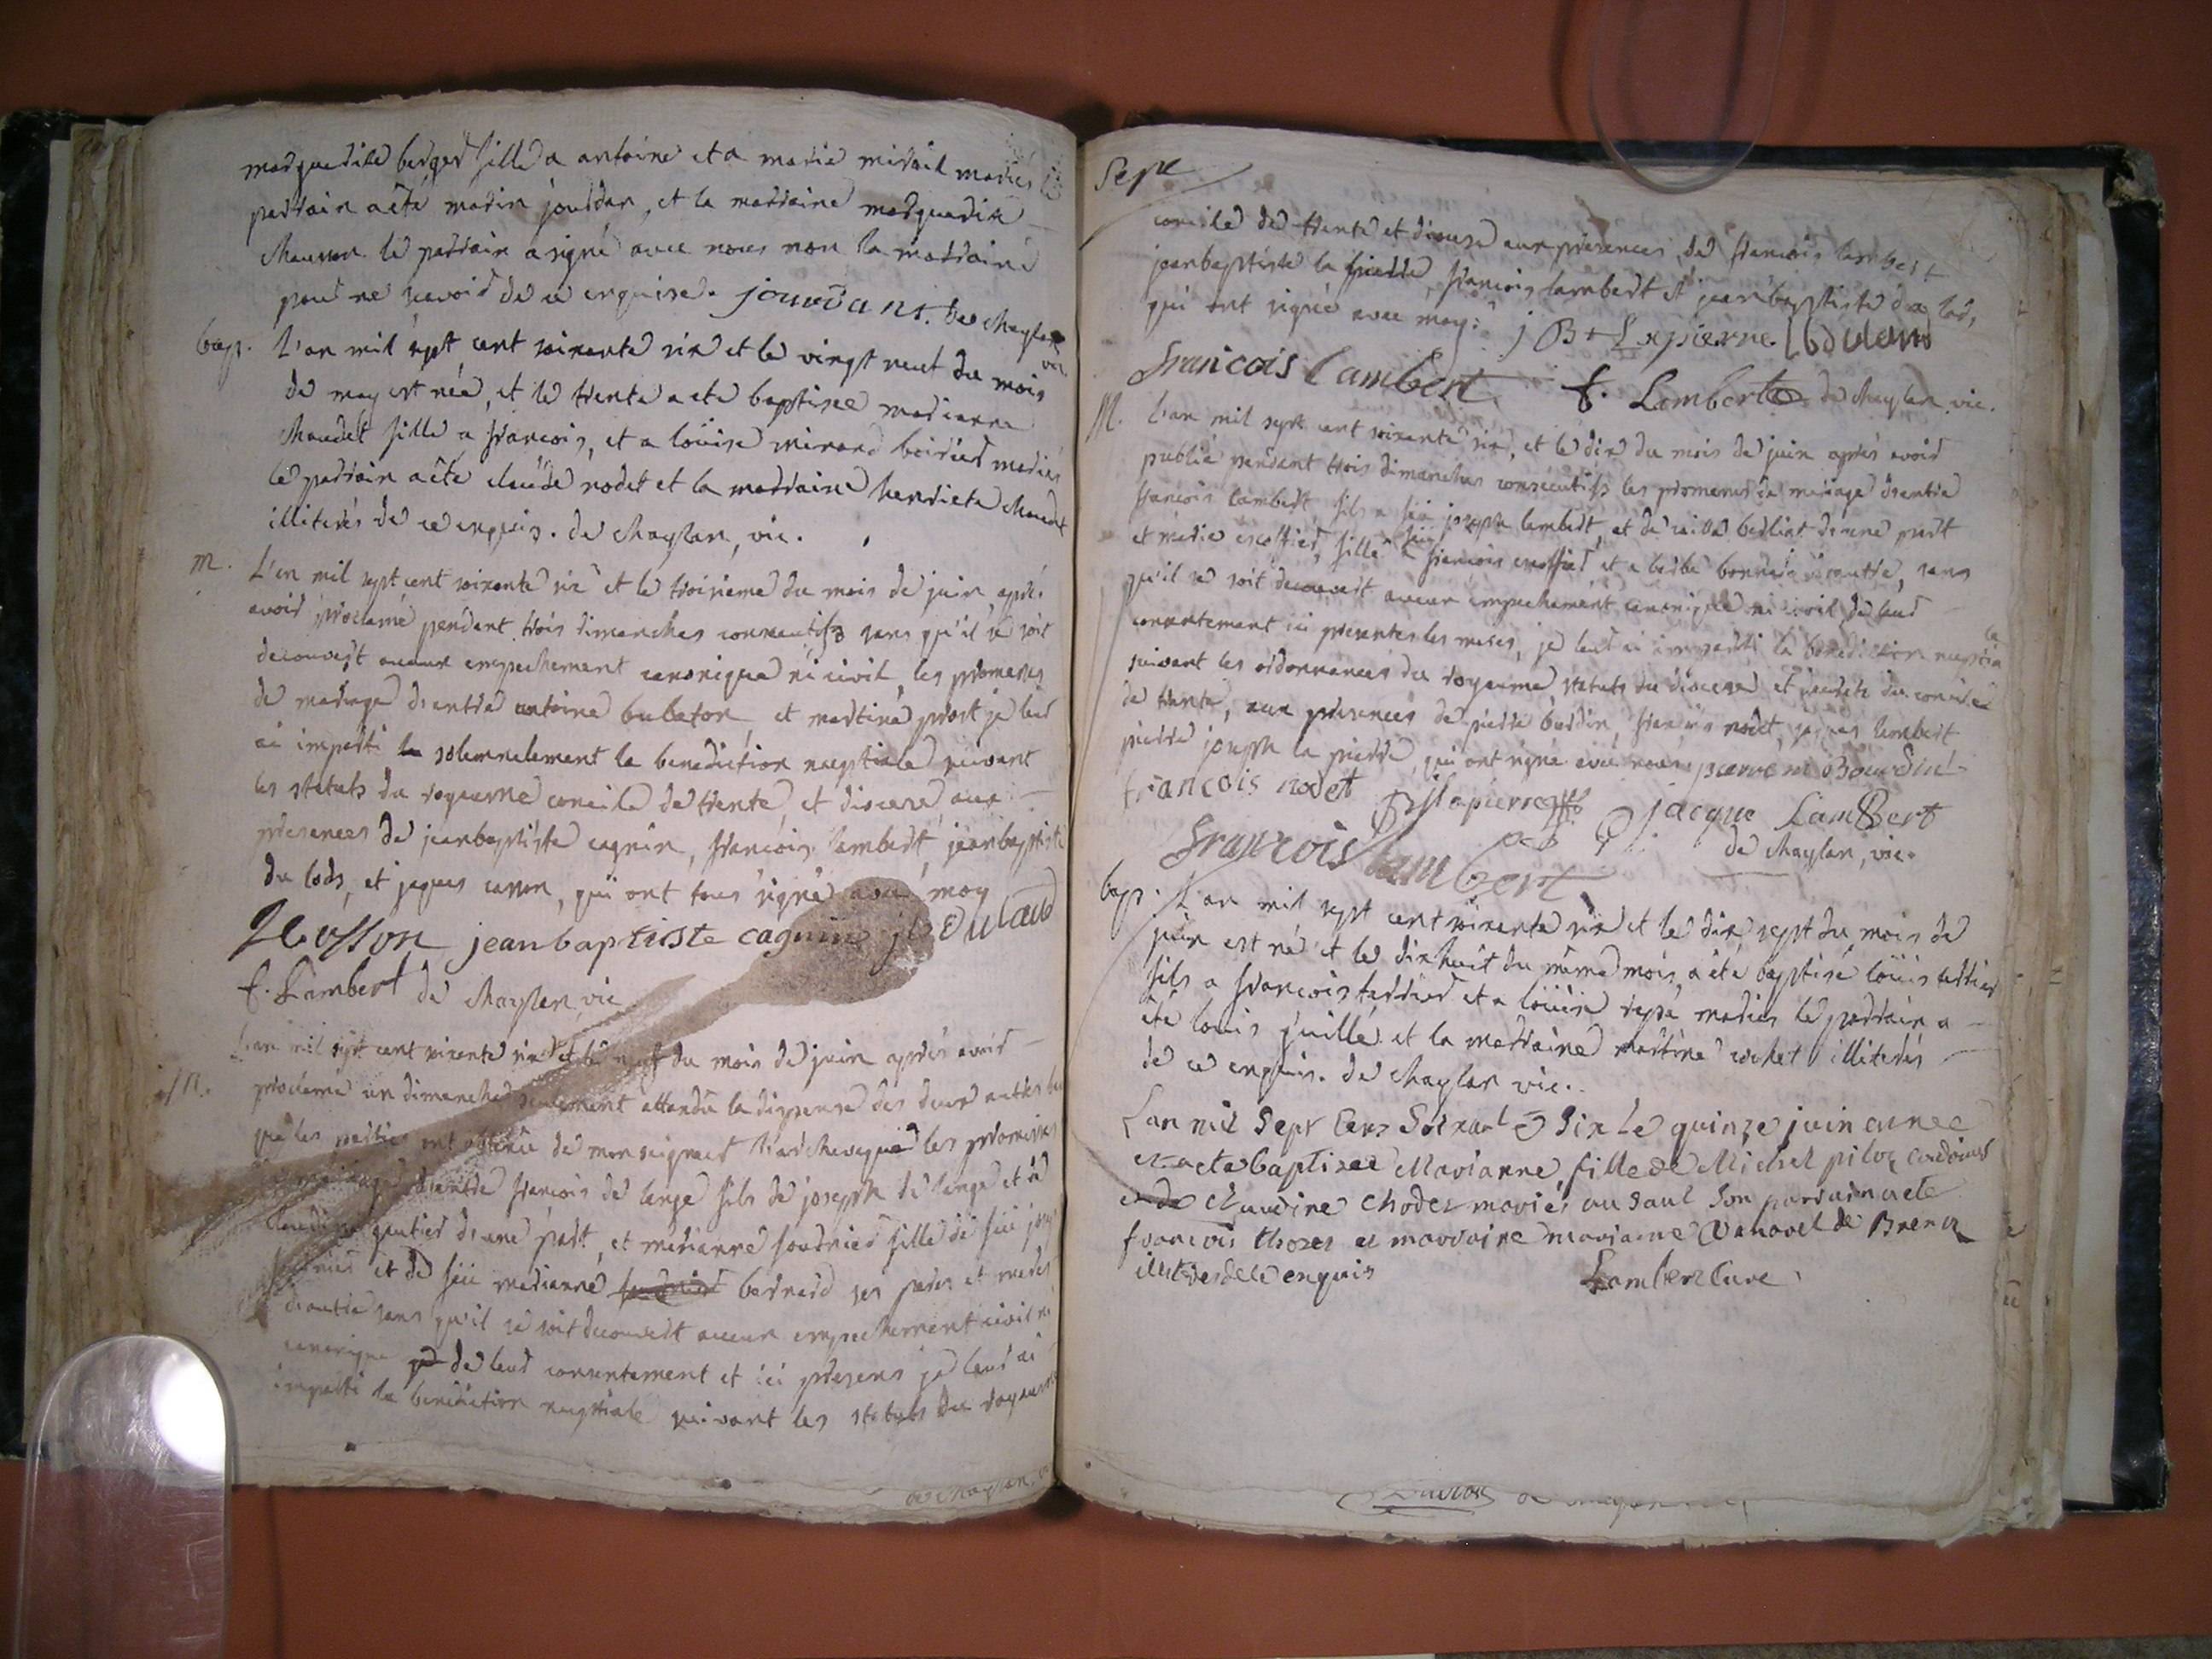 marguerite berger fille a antoine et a marie mirail mariés
parrain a été marin jourdan, et la marraine marguerite
chausson le parrain a signé avec nous non la marraine
pour ne scavoir de ce enquise. jourdant. de chaylan vic
bap. L'an mil sept cent soixante six et le vingt neuf du mois
de may est née, et le trente a ete baptisee marianne
chaudet fille a francois, et a loüise mirand mariés
le parrain a été claude rodet et la marraine henriete chaudet
illiterés de ce enquis. de chaylan, vic.
m. L'an mil sept cent soixante six et le troisieme du mois de juin, aprés
avoir proclamé pendant trois dimanches consecutifs sans qu'il se soit
decouvert aucun empechement canonique ni civil, les promesses
de mariage d'entre antoine bubaton et martine prost je leur
ai imparti la solemnelement la benediction nuptiale suivant
les statuts du royaume concile de trente, et diocese aux
presences de jeanbaptiste cagnin, francois lambert, jeanbaptiste
du lods, et jaques casson, qui ont tous signé avec moy
jeanbaptiste cagnin jb Dulaud
f. Lambert de chaylan, vic
L'an mil sept cent soixante six et le neuf du mois de juin aprés avoir
m. proclamé un dimanche seulement attendu la dispense des deux autres
que les parties ont obtenue de monseigneur l'archeveque les promesses
de mariage d'entre francois de lange fils de joseph de lange et a
claudine gautier d'une part, et marianne foudrier fille de feu
et de feüe marianne bernard ses peres et meres
d'autre sans qu'il se soit decouvert aucun empechement civil ni
canonique de leur consentement et ici presens je leur ai
imparti la benediction nuptiale suivant les statuts du royaume
de chaylan
Sept
concile de trente et diocese aux presences de francois lambert
jeanbaptiste la pierre, francois lambert et jeanbaptiste du lod,
qui ont signée avec moy: j B Lapierre
francois lambert f. Lambert de chaylan vic.
M. L'an mil sept cent soixante six, et le dix du mois de juin aprés avoir
publié pendant trois dimanches consecutifs les promesses de mariage d'entre
francois lambert fils a feu joseph lambert, et de d'une part
et marie escoffier, fille a feu francois escoffier et a d'autre, sans
qu'il se soit decouvert aucun empechement canonique ni civil de leur
consentement ici presentes les meres, je leur ai imparti la benediction nuptiale
suivant les ordonnances du royaume statuts du diocese et decrets du concile
de trente, aux presences de pierre burdin, francois rodet, jaques lambert
pierre joseph la pierre, qui ont signé avec nous. pierre Bourdin
francois rodet lapierre jacque LamBert
francois lambert de chaylan, vic.
bap. L'an mil sept cent soixante six et le dix sept du mois de
juin est né et le dixhuit du même mois a été baptisé loüis terrier
fils a francois terrier et a loüise mariés le parrain a
été louis guille et la marraine martine cochet illiterés
de ce enquis. de chaylan vic.
Lan mil Sept Cens Soixante Six Le quinze juin est nee
et a ete baptizee Marianne, fille de Michel piloz cordonier
et de Claudine Chodez mariés au Saul Son parrain a ete
francois thozet et marraine marianne de Brenaz
illiteres de ce enquis Lambert Cure